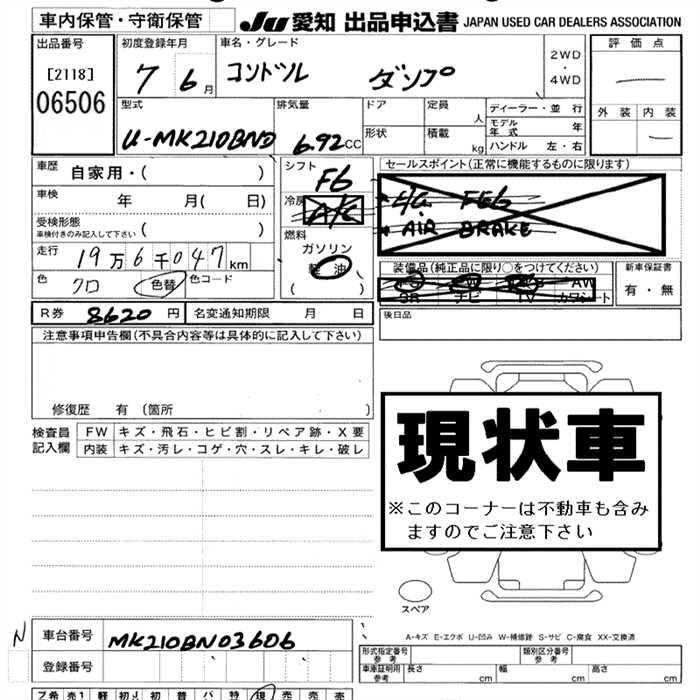 車内保管・守衛保管 JU 愛知 出品申込書 JAPAN USED CAR DEALERS ASSOCIATION
出品番号 初度登録年月 車名・グレード 評価点
[2118] 7 6月 コンドル ダンプ 2WD・4WD
06506
型式 排気量 ドア 定員 人 ディーラー・並行 外装 内装
U-MK210BND 6.92CC 形状 積載 kg モデル年式 年
ハンドル 左・右
車歴 自家用・( ) シフト F6 セールスポイント(正常に機能するものに限ります)
車検 年 月( 日) 冷房 A/C
FE6
AIR BRAKE
受検形態 車検付きのみ記入して下さい ( ) 燃料
走行 19万6千047km ガソリン
色 クロ 色替 色コード 軽油
( )
装備品(純正品に限り○をつけてください) 新車保証書
AW 有・無
SR ナビ TV カワシート
R券 8620円 名変通知期限 月 日 後日品
注意事項申告欄(不具合内容等は具体的に記入して下さい)
修復歴 有 (箇所 )
検査員記入欄 FW キズ・飛石・ヒビ割・リペア跡・X要
内装 キズ・汚レ・コゲ・穴・スレ・キレ・破レ
現状車
※このコーナーは不動車も含み
ますのでご注意下さい
スペア
A-キズ E-エクボ U-凹み W-補修跡 S-サビ C-腐食 XX-交換済
N 車台番号 MK210BN03606
登録番号
形式指定番号 参考 類別区分番号 参考
車庫証明用 参考 長さ cm 幅 cm 高さ cm